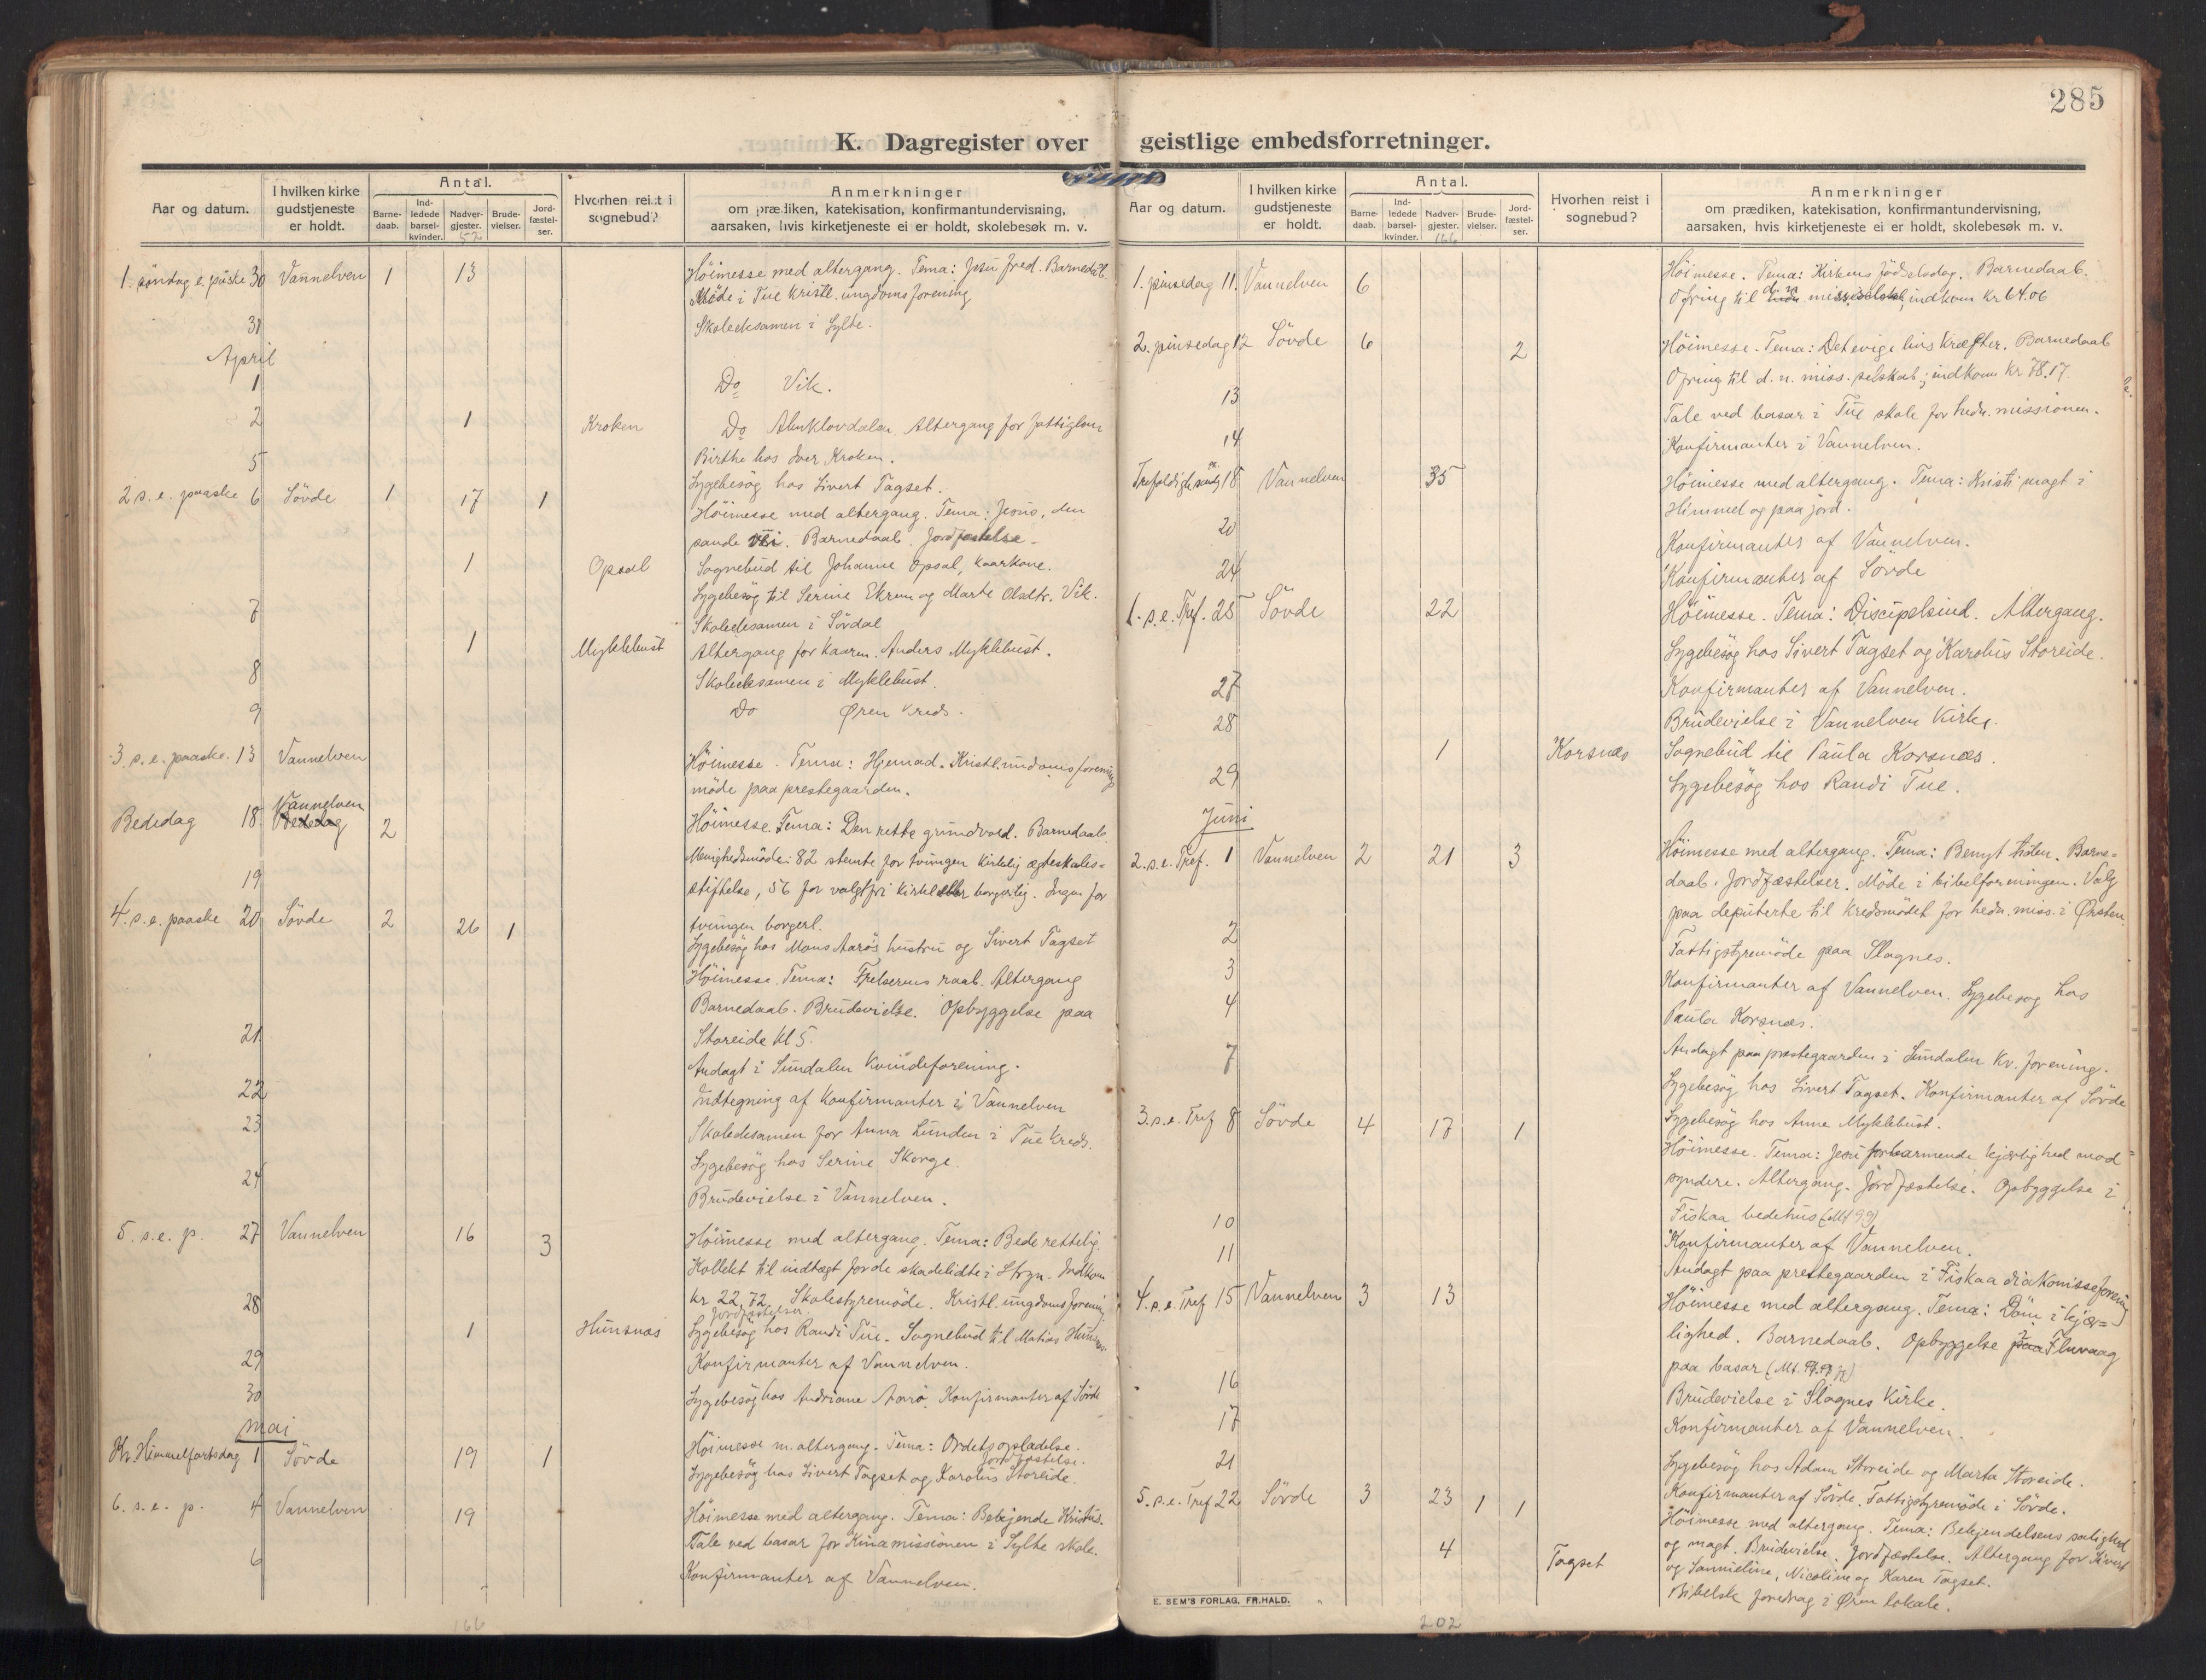 285
K. Dagregister over geistlige embedsforretninger.
Aar og datum.
I hvilken kirke gudstjeneste er holdt.
Antal.
Barne-daab.
Ind-ledede barsel-kvinder.
Nadver-gjester.
Brude-vielser.
Jord-fæstel-ser.
Hvorhen reist i sognebud?
Anmerkninger
om prædiken, katekisation, konfirmantundervisning,
aarsaken, hvis kirketjeneste ei er holdt, skolebesøk m. v.
52
1. søndag e. påske 30 Vannelven 1 13 Höimesse med altergang. Tema: Jesu fred. Barnedåb.
Möde i Tue kristl. ungdomsforening
31 Skoleeksamen i Sylte.
April
1 Do Vik.
2 1 Kroken Do Almklovdalen Altergang for fattiglem
Birthe hos Iver Kroken.
5 Sygebesøg hos Sivert Tagset.
2 s. e. paaske 6 Sövde 1 17 1 Höimesse med altergang. Tema: Jesus, den
sande vei. Barnedaab. Jordfæstelse.
1 Opsal Sognebud til Johanne Opsal, kaarkone.
Sygebesøg til Serine Ekrem og Marte Olsdtr. Vik.
7 Skoleeksamen i Sördal
1 Myklebust Altergang for kaarm. Anders Myklebust.
8 Skoleeksamen i Myklebust.
9 Do Øren kreds.
3 s. e. paaske. 13 Vannelven Höimesse. Tema: Hjemad. Kristl. undomsforenings
möde paa prestegaarden.
Bededag 18 Vannelven Bededag 2 Höimesse. Tema: Den rette grundvold. Barnedaab
Menighedsmöde: 82 stemte for tvungen kirkelig ægteskabs=
stiftelse, 56 for valgfri kirkel eller borgerlig. Ingen for
tvungen borgerl.
19 Sygebesøg hos Mons Aarös hustru og Sivert Tagset
4. s. e. paaske 20 Sövde 2 26 1 Höimesse. Tema: Frelserens raab. Altergang
Barnedaab. Brudevielse. Opbyggelse paa
Storeide kl 5.
21. Andagt i Sundalen Kvindeforening.
22 Indtegning af konfirmanter i Vannelven
23 Skoleeksamen for Anna Lunden i Tue kreds.
Sygebesøg hos Serine Skorge.
24 Brudevielse i Vannelven.
5. s. e. p. 27 Vannelven 16 3 Höimesse med altergang. Tema: Bede rettelig.
Kollekt til indtægt for de skadelidte i Stryn. Indkom
kr 22,72. Skolestyremöde. Kristl. ungdomsforening
Jordfæstelser.
28 1 Hunsnæs Sygebesøg hos Randi Tue. Sognebud til Matias Hunsnæs
29 Konfirmanter af Vannelven.
30 Sygebesøg hos Andriane Aarö. Konfirmanter af Sövde
Mai
Kr. Himmelfartsdag 1 Sövde 19 1 Höimesse m. altergang. Tema: Ordets opladelse.
Jordfæstelse.
Sygebesøg hos Sivert Tagset og Karolus Storeide.
6. s. e. p. 4 Vannelven 19 Höimesse med altergang. Tema: Bekjende Kristus.
Tale ved basar for Kinamissionen i Sylte skole.
6 Konfirmanter af Vannelven.
166
Aar og datum.
I hvilken kirke gudstjeneste er holdt.
Antal.
Barne-daab.
Ind-ledede barsel-kvinder.
Nadver-gjester.
Brude-vielser.
Jord-fæstel-ser.
Hvorhen reist i sognebud?
Anmerkninger
om prædiken, katekisation, konfirmantundervisning,
aarsaken, hvis kirketjeneste ei er holdt, skolebesøk m. v.
166
1. pinsedag 11. Vannelven 6 Höimesse. Tema: Kirkens födselsdag. Barnedaab.
Ofring til d. n. misj.selskab, indkom kr 64.06
2. pinsedag 12 Sövde 6 2 Höimesse. Tema: Det evige livs kræfter. Barnedaab
Ofring til d. n. miss. selskab; indkom kr 78.17.
13 Tale ved basar i Tue skole for hedn. missionen.
14 Konfirmanter i Vannelven.
Trefoldigh. søndg 18 Vannelven 35 Höimesse med altergang. Tema: Kristi magt i
Himmel og paa jord.
20 Konfirmanter af Vannelven.
24 Konfirmanter af Sövde
1. s. e. Tref. 25 Sövde 22 Höimesse. Tema: Discipelsind. Altergang.
Sygebesøg hos Sivert Tagset og Karolus Storeide.
27 Konfirmanter af Vannelven.
28 Brudevielse i Vannelven Kirke.
1 Korsnæs Sognebud til Paula Korsnæs.
29 Sygebesøg hos Randi Tue.
Juni
2. s. e. Tref. 1 Vannelven 2 21 3 Höimesse med altergang. Tema: Benyt tiden. Barne=
daab. Jordfæstelser. Möde i bibelforeningen. Valg
paa deputerte til kredsmödet for hedn. miss. i Ørsten
2 Fattigstyremöde paa Slagnes.
3 Konfirmanter af Vannelven. Sygebesøg hos
4 Paula Korsnæs.
Andagt paa prestegaarden i Sundalen kv. forening.
7 Sygebesøg hos Sivert Tagset. Konfirmanter af Sövde
Sygebesøg hos Anne Myklebust.
3. s. e. Tref 8 Sövde 4 17 1 Höimesse. Tema: Jesu forbarmende kjærlighed mod
syndere. Altergang. Jordfæstelse. Opbyggelse i
Fiskaa bedehus (Mt 99)
10 Konfirmanter af Vannelven.
11 Andagt paa prestegaarden i Fiskaa diakonisseforening
4. s. e. Tref 15 Vannelven 3 13 Höimesse med altergang. Tema: Döm i kjær=
lighed. Barnedaab. Opbyggelse paa i Fluvaag
paa basar
16 Brudevielse i Slagnes Kirke.
17 Konfirmanter af Vannelven.
21 Sygebesøg hos Adam Storeide og Marta Storeide.
Konfirmanter af Sövde. Fattigstyremöde i Sövde.
5. s. e. Tref 22 Sövde 3 23 1 1 Höimesse med altergang. Tema: Bekjendelsens salighed
og magt. Brudevielse. Jordfæstelse. Altergang for Sivert
4 Tagset og Sannieline, Nicoline og Karen Tagset.
Bibelsk foredrag i Øren lokale.
E. SEM'S FORLAG, FR.HALD.
202